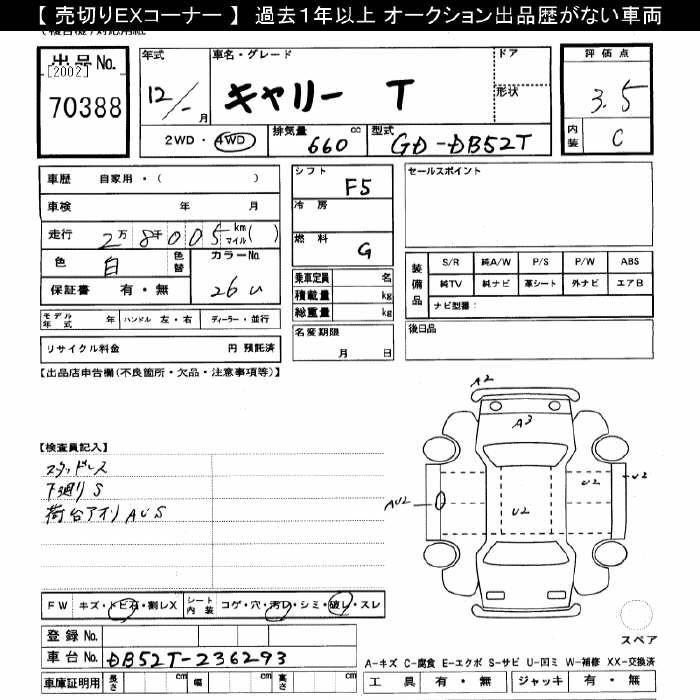 【 売切りEXコーナー 】 過去1年以上 オークション出品歴がない車両
出品No.
[2002]
70388
年式
12/-月
車名・グレード
キャリー T
ドア
形状
評価点
3.5
内装 C
2WD・4WD
排気量 660 cc
型式 GD-DB52T
車歴 自家用・( )
車検 年 月
走行 2万8千005 km マイル( )
色 白 色替
カラーNo. 26U
保証書 有・無
モデル年式 年 ハンドル 左・右 ディーラー・並行
リサイクル料金 円 預託済
シフト F5
冷房
燃料 G
乗車定員 名
積載量 kg
総重量 kg
名変期限
月 日
セールスポイント
装備品
S/R 純A/W P/S P/W ABS
純TV 純ナビ 革シート 外ナビ エアB
ナビ型番：
後日品
【出品店申告欄(不良箇所・欠品・注意事項等)】
【検査員記入】
スタッドレス
下廻りS
荷台アオリ AUS
A2
A3
AU2
U2
U2
U2
スペア
FW キズ・トビ石・割レX シート内装 コゲ・穴・汚レ・シミ・破レ・スレ
登録No.
車台No. DB52T-236293
車庫証明用 長さ cm 幅 cm 高さ cm
A-キズ C-腐食 E-エクボ S-サビ U-凹ミ W-補修 XX-交換済
工具 有・無 ジャッキ 有・無